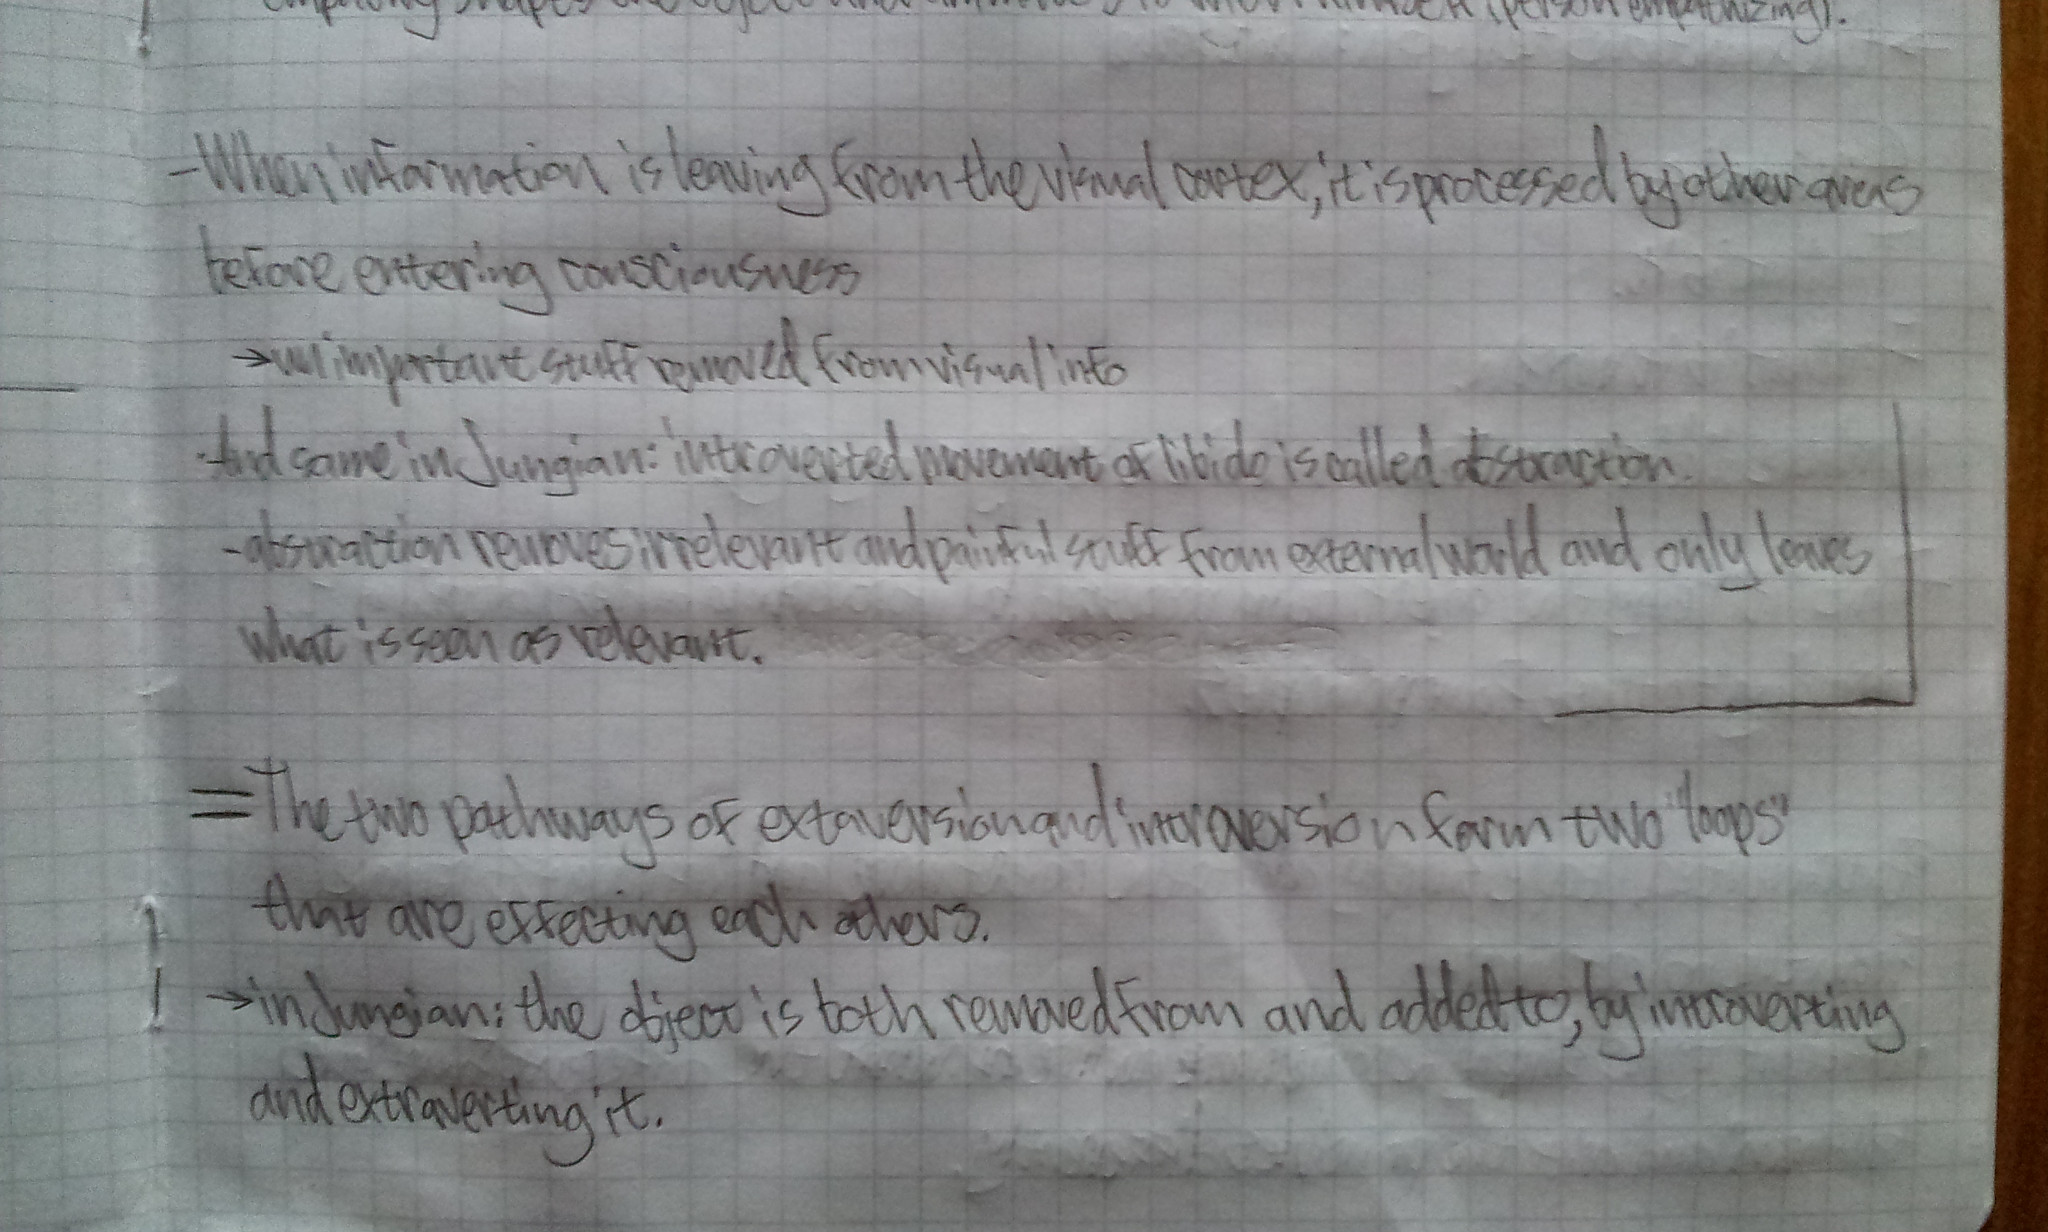 (person empathizing).
- When information is leaving from the visual cortex, it is processed by other areas
before entering consciousness
→ unimportant stuff removed from visual info
· And same in Jungian: introverted movement of libido is called abstraction.
- abstraction removes irrelevant and painful stuff from external world and only leaves
what is seen as relevant.
= The two pathways of extaversion and introversion form two "loops"
that are effecting each others.
→ in Jungian: the object is both removed from and added to, by introverting
and extraverting it.